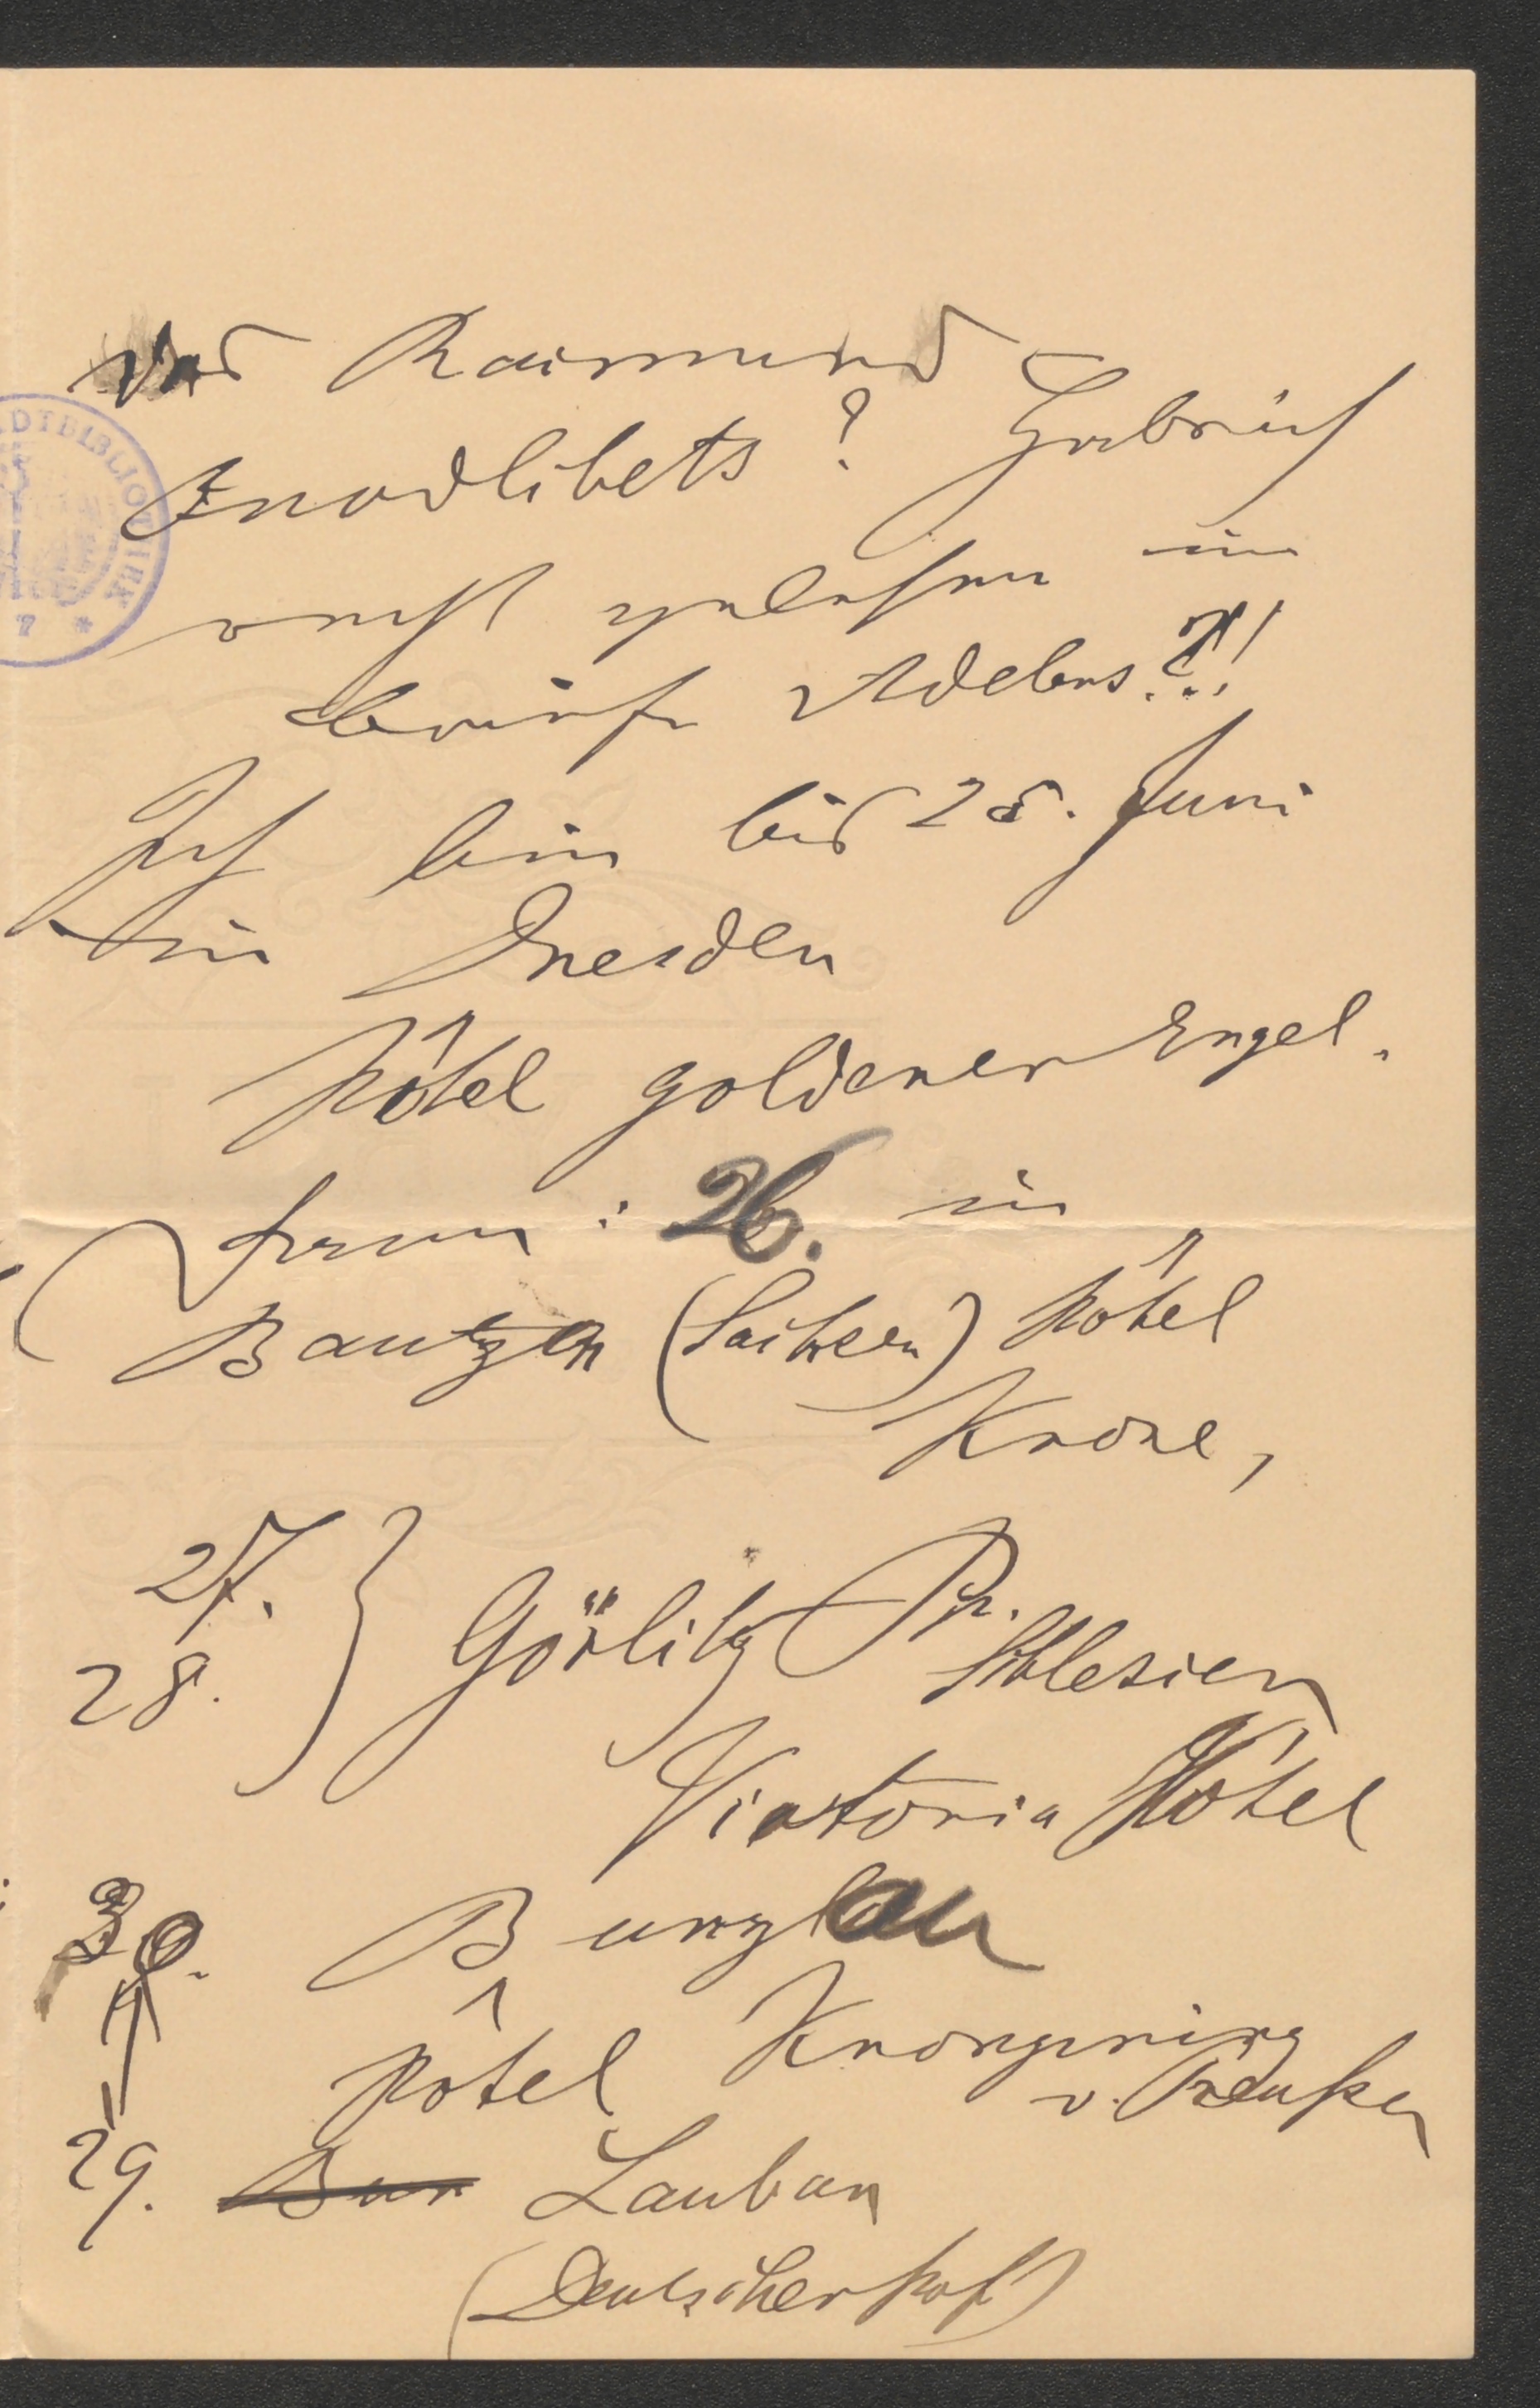 das Raimund
Quodlibets? Habe ich
recht gelesen im
Briefe Adelens?!!
Ich bin bis 25. Juni
in Dresden
Hôtel goldener Engel.
dann: 26. in
Bautzen (Sachsen) Hôtel
Krone,
27.
28. } Görlitz Pr.
Schlesien
Victoria Hôtel
30. Bunzlau
Hôtel Kronprinz
v. Preußen
29. Bun Lauban
(Deutscher Hof)